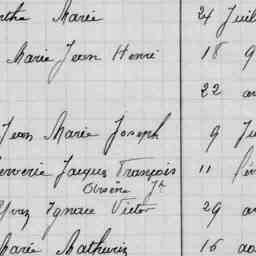 rtha Marie 24 Juil
Marie Jean Henri 18 9
22 av
Jean Marie Joseph 9 Ju
Jacques François 11 fév
Ignace Victor 29 a
Marie Mathurin 16 aoû